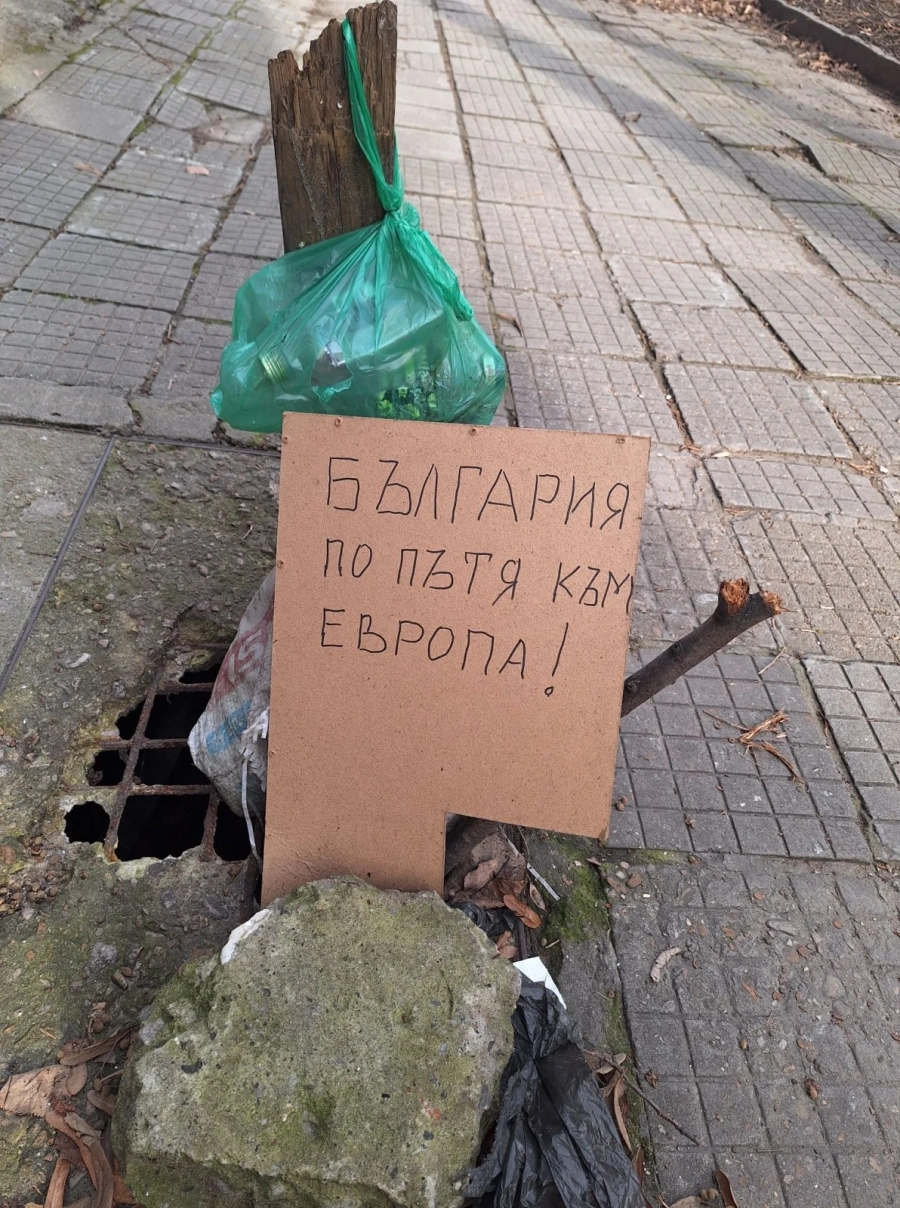 БЪЛГАРИЯ
ПО ПЪТЯ КЪМ
ЕВРОПА!